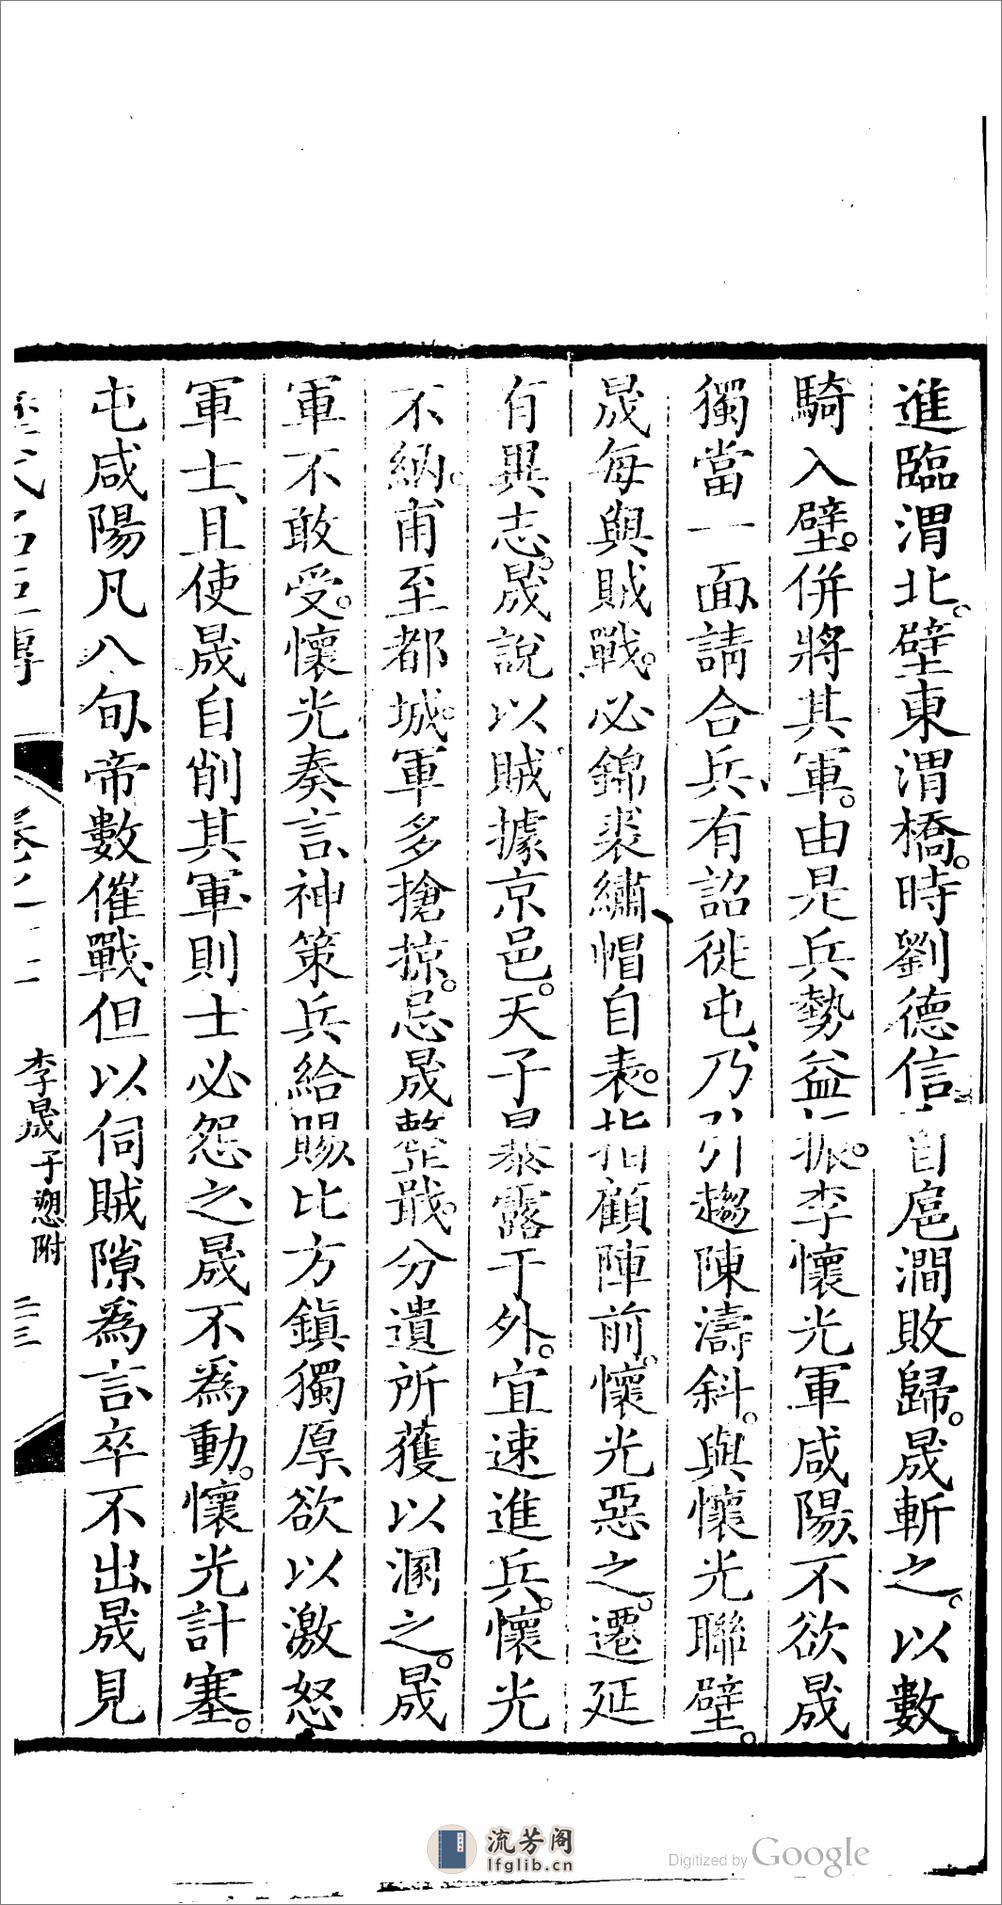 進臨渭北。壁東渭橋。時劉德信自扈澗敗歸。晟斬之。以數
騎入壁。併將其軍。由是兵勢益振。李懷光軍咸陽、不欲晟
獨當一面、請合兵、有詔徙屯、乃引趨陳濤斜。與懷光聯壁。
晟每與賊戰。必錦裘繡帽自表。指顧陣前。懷光惡之。遷延
有異志。晟說以賊據京邑。天子暴露于外。宜速進兵。懷光
不納。甫至都城。軍多搶掠。忌晟整戢。分遺所獲以溷之。晟
軍不敢受。懷光奏言、神策兵給賜、比方鎮獨厚、欲以激怒
軍士、且使晟自削其軍、則士必怨之、晟不為動。懷光計塞。
屯咸陽凡八旬、帝數催戰、但以伺賊隙為言、卒不出、晟見
歷代名臣傳 卷之二十二 李晟子愬附 二三
流芳阁
lfglib.cn
Digitized by Google